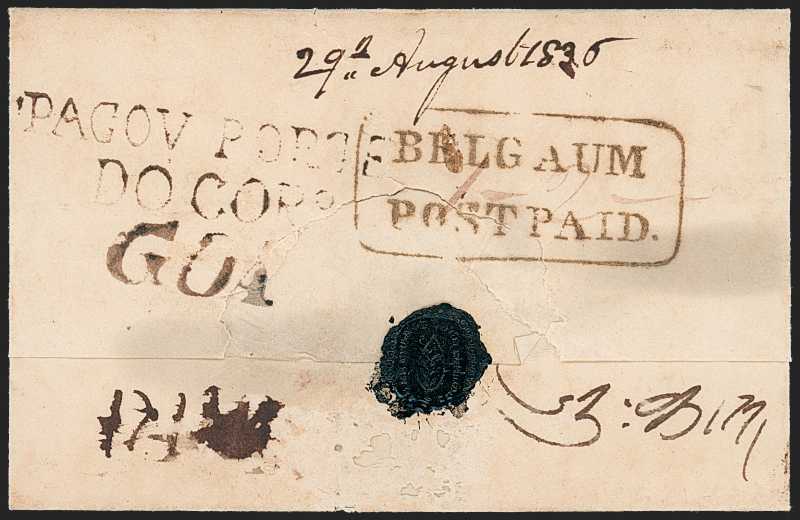 29n August 1836
PAGOV PORTE
DO CORo
GOA
BELGAUM
POSTPAID.